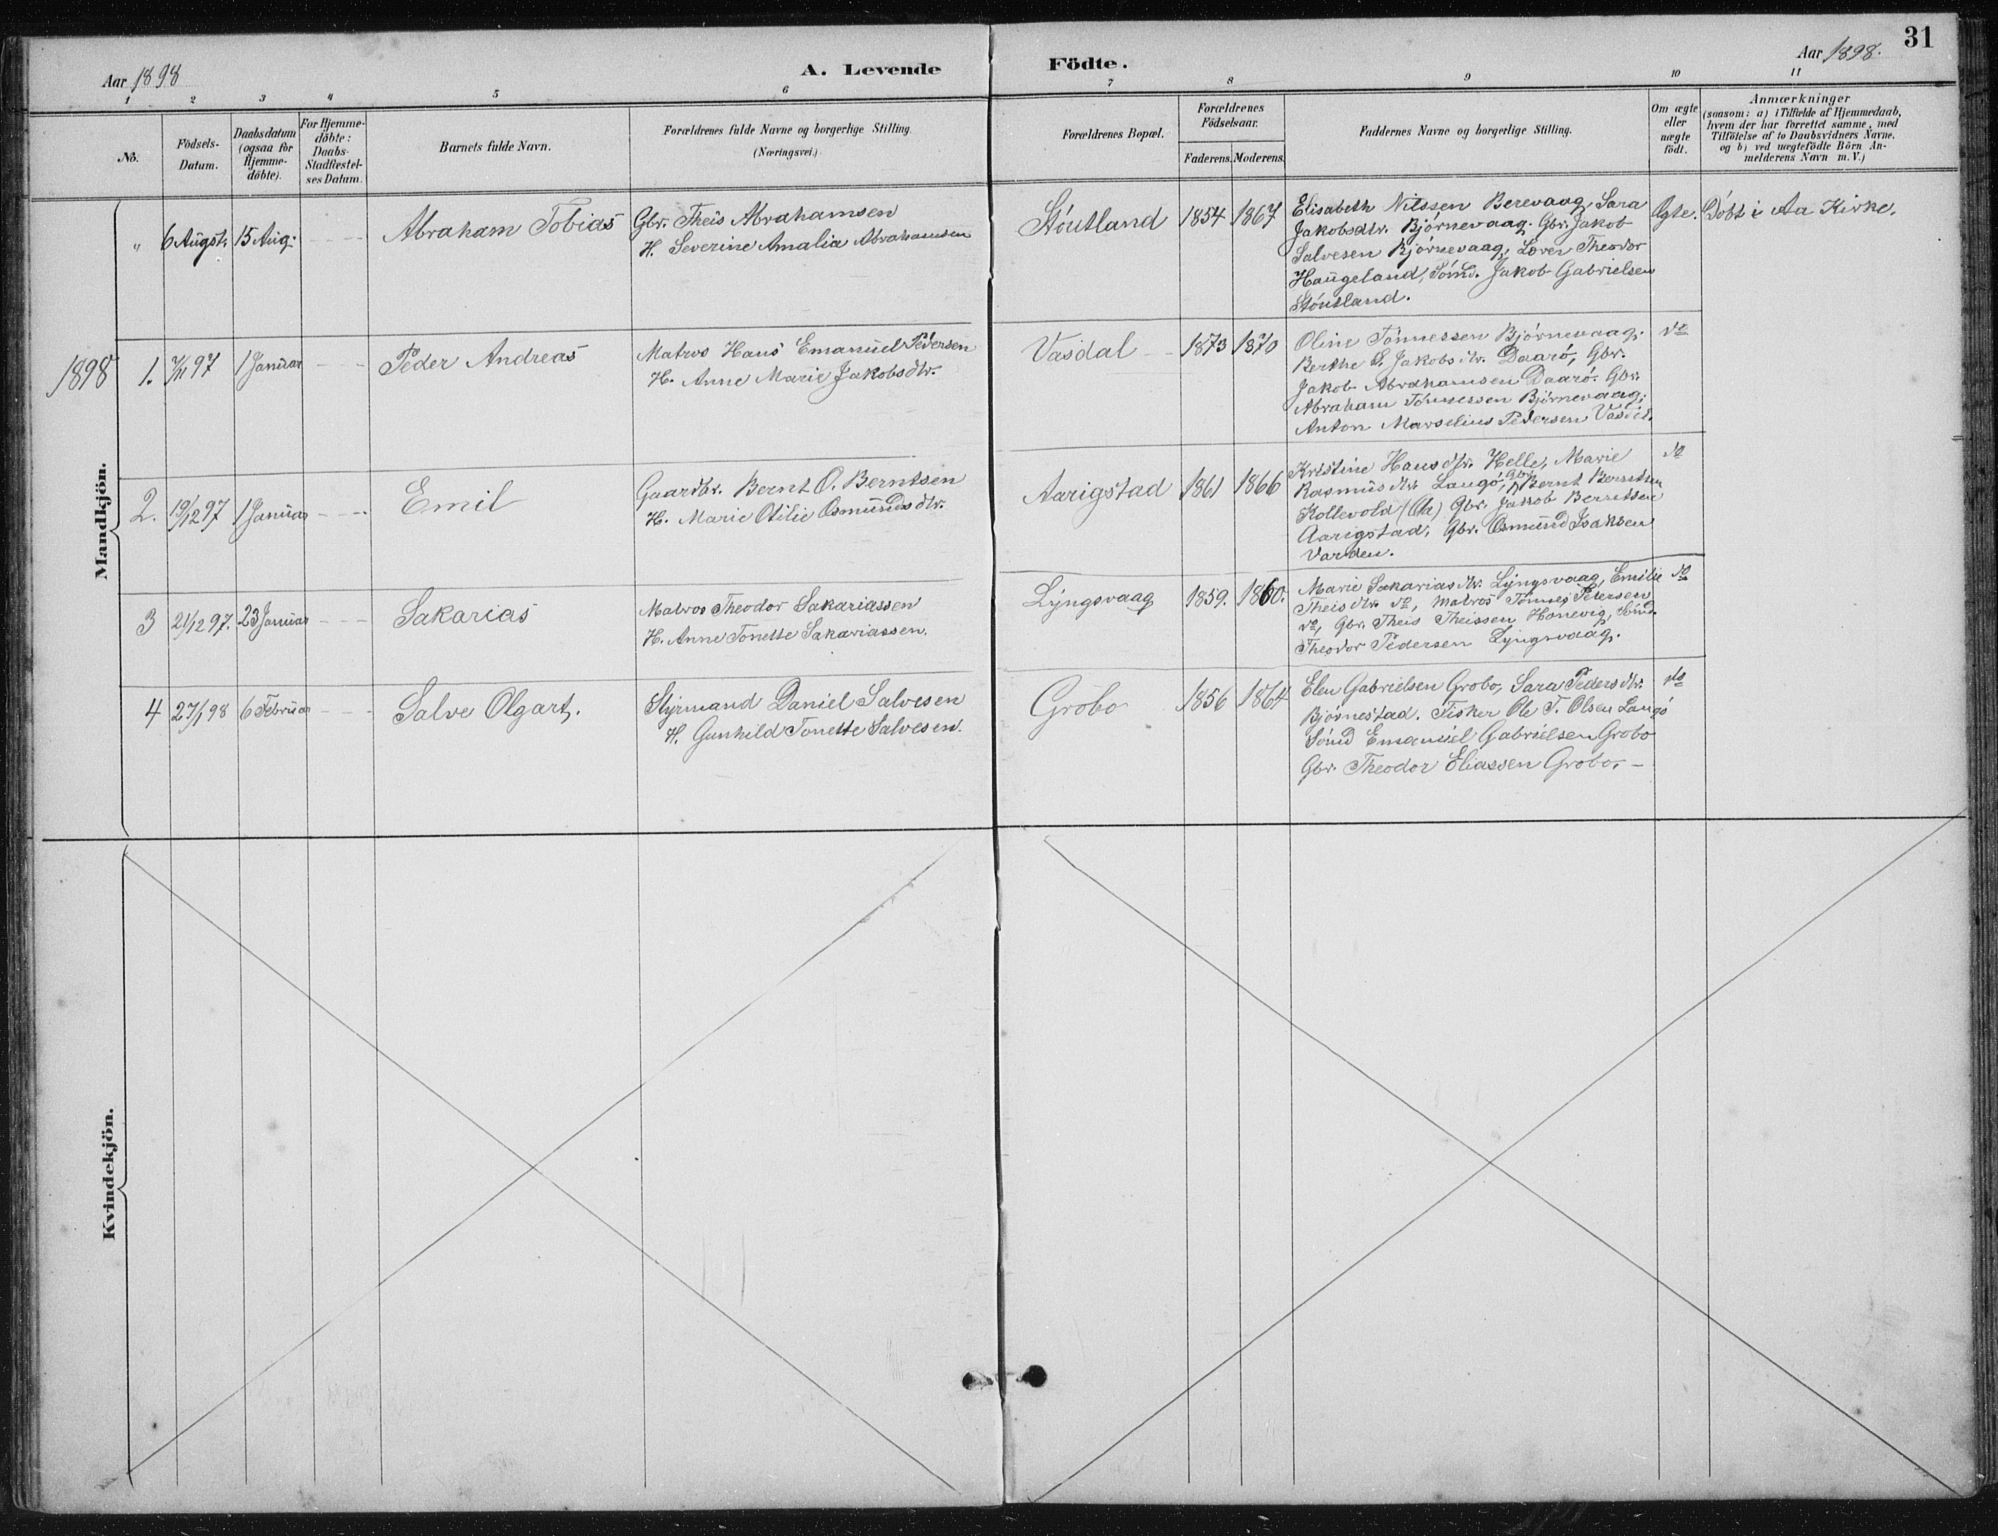 31
Aar 1898
A. Levende Födte.
Aar 1898.
1 2 3 4 5 6 7 8 9 10 11
No.
Födsels-
Datum.
Daabsdatum
(ogsaa for
Hjemme-
döbte).
For Hjemme-
döbte:
Daabs-
Stadfæstel-
ses Datum.
Barnets fulde Navn.
Forældrenes fulde Navne og borgerlige Stilling.
(Næringsvei.)
Forældrenes Bopæl.
Forældrenes
Födselsaar.
Faderens. Moderens.
Faddernes Navne og borgerlige Stilling.
Om ægte
eller
uægte
födt.
Anmærkninger
(saasom: a) i Tilfælde af Hjemmedaab,
hvem der har forrettet samme, med
Tilföielse af to Daabsvidners Navne,
og b) ved uægtefödte Börn An-
melderens Navn m. V.)
Mandkjön.
" 6 August. 15 Aug.
Abraham Tobias
Gbr. Theis Abrahamsen
H. Severine Amalia Abrahamsen
Stóutland
1854 1867
Elisabeth Nilssen Berevaag, Sara
Jakobsdtr. Bjórnevaag. Gbr. Jakob
Salvesen Bjórnevaag, Lærer Theodor
Haugeland, Sónd. Jakob Gabrielsen
Stóutland.
Ægte.
Dóbt i Aa Kirke.
1898
1. 7/11 97 1 Januar
Peder Andreas
Matros Hans Emanuel Pedersen
H. Anne Marie Jakobsdtr.
Vasdal
1873 1870
Oline Tónnessen Bjórnevaag.
Berthe S. Jakobsdtr. Daaró, Gbr.
Jakob Abrahamsen Daaró. Gbr.
Abraham Tónnessen Bjórnevaag,
Anton Marselius Pedersen Vasdal.
do
2. 19/12 97 1 Januar
Emil
Gaardbr. Bernt O. Berntsen
H. Marie Otilie Osmundsdtr.
Aarigstad
1861 1866
Kristine Hansdtr. Helle, Marie
Rasmusdtr. Langó, Gbr. Bernt Berntsen
Kollevold Gbr. Jakob Berntsen
Aarigstad, Gbr. Osmund Isaksen
Varden.
do
3 21/12 97. 23 Januar
Sakarias
Matros Theodor Sakariassen
H. Anne Tonette Sakariassen.
Lyngsvaag
1859. 1860.
Marie Sakariasdtr. Lyngsvaag, Emilie
Theisdtr. do, Matros Tónnes Petersen
do, Gbr. Theis Theissen Honevig, Sónd.
Theodor Pedersen Lyngsvaag.
do
4 27/1 98 6 Februar
Salve Olgart.
Styrmand Daniel Salvesen
H. Gunhild Tonette Salvesen.
Grobo
1856 1864
Elen Gabrielsen Grobo, Sara Pedersdtr.
Bjórnestad. Fisker Ole T. Olsen Langó
Sónd Emanuel Gabrielsen Grobo
Gbr. Theodor Eliassen Grobo.
do
Kvindekjön.